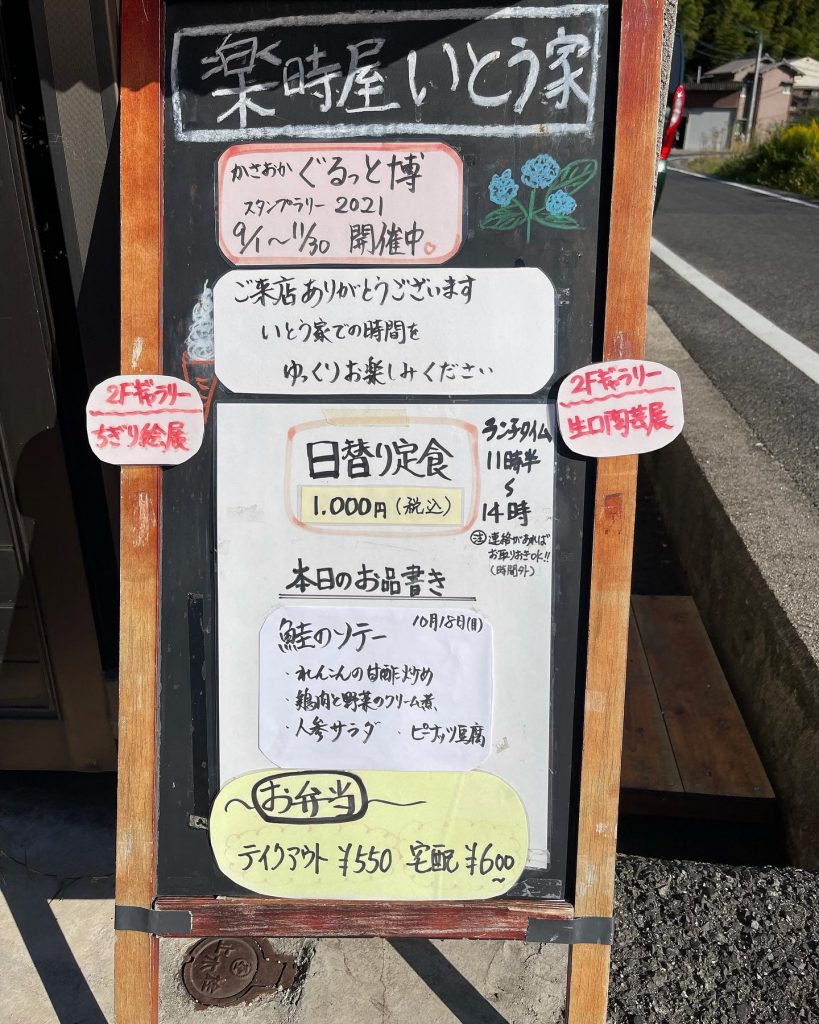 楽時屋 いとう家
かさおか ぐるっと博
スタンプラリー 2021
9/1～11/30 開催中
ご来店ありがとうございます
いとう家での時間を
ゆっくりお楽しみください
2Fギャラリー
ちぎり絵展
2Fギャラリー
生口陶芸展
日替り定食
1.000円(税込)
ランチタイム
11時半
～
14時
㊟連絡があれば
お取りおきOK!!
(時間外)
本日のお品書き
10月18日(月)
鮭のソテー
・れんこんの甘酢炒め
・鶏肉と野菜のクリーム煮
・人参サラダ ・ピーナッツ豆腐
～お弁当～
テイクアウト ¥550 宅配 ¥600～